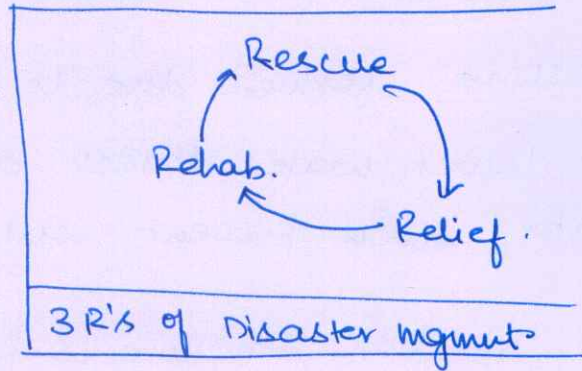 Rescue
Rehab.
Relief.
3 R's of Disaster mgmnt.